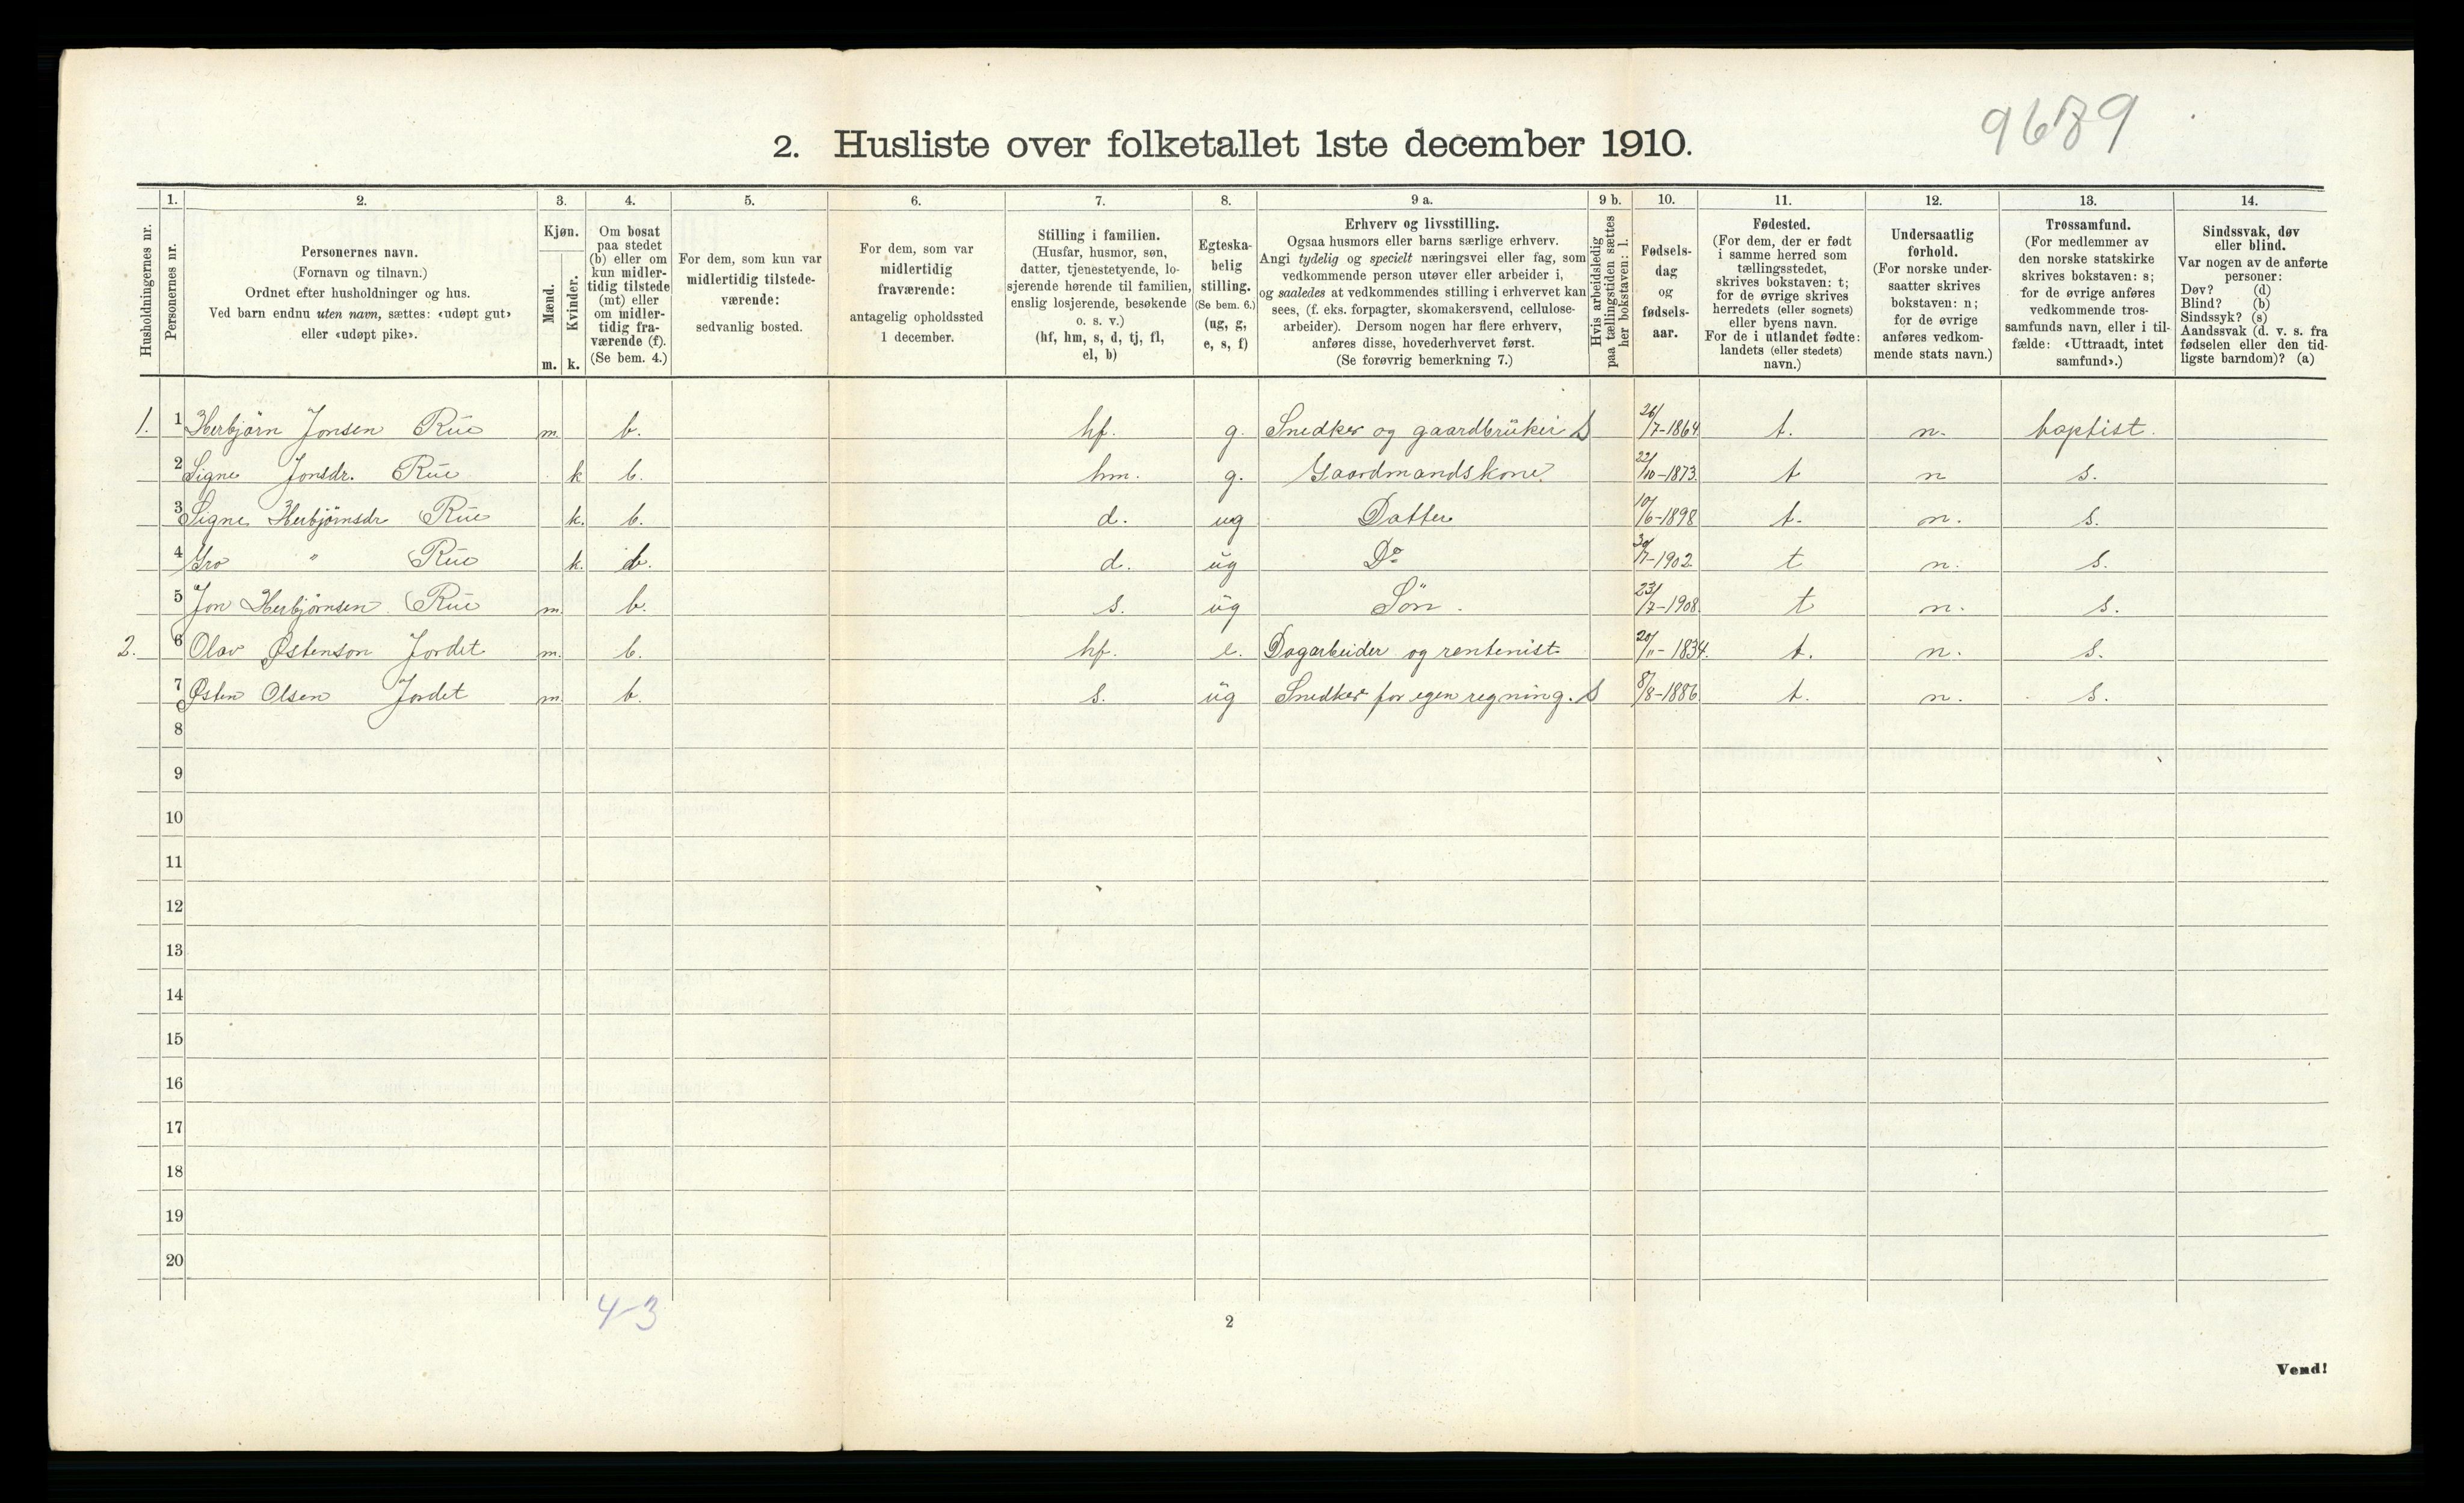 9689
2. Husliste over folketallet 1ste december 1910.
Husholdningernes nr.
1.
Personernes nr.
2.
Personernes navn.
(Fornavn og tilnavn.)
Ordnet efter husholdninger og hus.
Ved barn endnu uten navn, sættes: «udøpt gut»
eller «udøpt pike».
3.
Kjøn.
Mænd.
Kvinder.
m. k.
4.
Om bosat
paa stedet
(b) eller om
kun midler-
tidig tilstede
(mt) eller
om midler-
tidig fra-
værende (f).
(Se bem. 4.)
5.
For dem, som kun var
midlertidig tilstede-
værende:
sedvanlig bosted.
6.
For dem, som var
midlertidig
fraværende:
antagelig opholdssted
1 december.
7.
Stilling i familien.
(Husfar, husmor, søn,
datter, tjenestetyende, lo-
sjerende hørende til familien,
enslig losjerende, besøkende
o. s. v.)
(hf, hm, s, d, tj, fl,
el, b)
8.
Egteska-
belig
stilling.
(Se bem. 6.)
(ug, g,
e, s, f)
9 a.
Erhverv og livsstilling.
Ogsaa husmors eller barns særlige erhverv.
Angi tydelig og specielt næringsvei eller fag, som
vedkommende person utøver eller arbeider i,
og saaledes at vedkommendes stilling i erhvervet kan
sees, (f. eks. forpagter, skomakersvend, cellulose-
arbeider). Dersom nogen har flere erhverv,
anføres disse, hovederhvervet først.
(Se forøvrig bemerkning 7.)
9 b.
Hvis arbeidsledig
paa tællingstiden sættes
her bokstaven: l.
10.
Fødsels-
dag
og
fødsels-
aar.
11.
Fødested.
(For dem, der er født
i samme herred som
tællingsstedet,
skrives bokstaven: t;
for de øvrige skrives
herredets (eller sognets)
eller byens navn.
For de i utlandet fødte:
landets (eller stedets)
navn.)
12.
Undersaatlig
forhold.
(For norske under-
saatter skrives
bokstaven: n;
for de øvrige
anføres vedkom-
mende stats navn.)
13.
Trossamfund.
(For medlemmer av
den norske statskirke
skrives bokstaven: s;
for de øvrige anføres
vedkommende tros-
samfunds navn, eller i til-
fælde: «Uttraadt, intet
samfund».)
14.
Sindssvak, døv
eller blind.
Var nogen av de anførte
personer:
Døv? (d)
Blind? (b)
Sindssyk? (s)
Aandssvak (d. v. s. fra
fødselen eller den tid-
ligste barndom)? (a)
1. 1 Herbjörn Jonsen Rue m. b. hf. g. Snedker og gaardbrüker S 26/7-1864 t. n. baptist.
2 Signe Jonsdr. Rue k b. hm. g. Gaardmandskone. 22/10-1873. t n s.
3 Signe Herbjörnsdr Rue k. b. d. ug Datter 10/6-1898 t. n. s.
4 Gro " Rue k. b. d. ug Do 30/7-1902 t n. s.
5 Jon Herbjörnsen Rue m. b. s. ug Sön. 23/7-1908. t n. s.
2. 6 Olav Østenson Jordet m. b. hf. e. Dagarbeider og rentenist 20/11-1834. t. n. s.
7 Østen Olsen Jordet m. b. s. ug Snedker for egen regning. S 8/8-1886 t. n. s.
8
9
10
11
12
13
14
15
16
17
18
19
20
4-3
2
Vend!